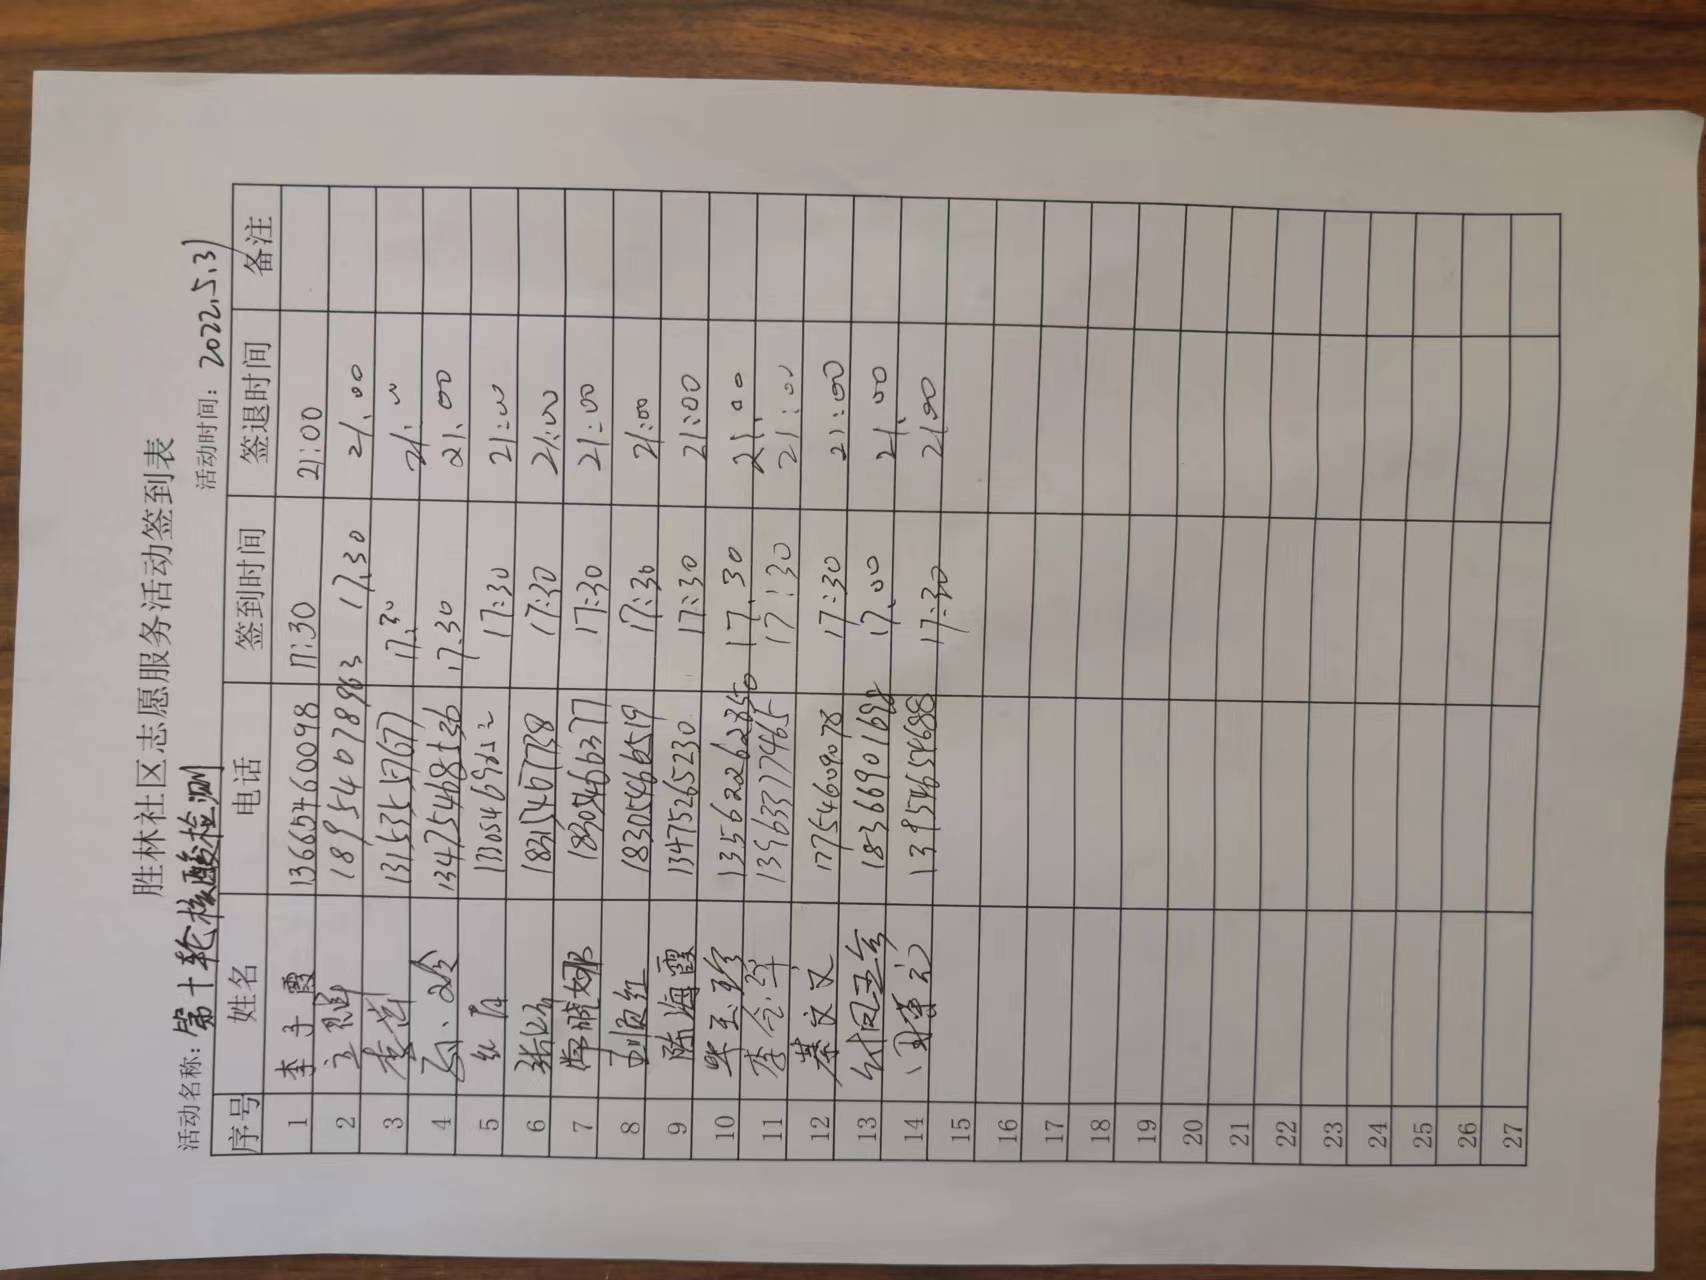 胜林社区志愿服务活动签到表
活动名称：第十轮核酸检测 活动时间：2022.5.31
序号 姓名 电话 签到时间 签退时间 备注
1 李子霞 13665460098 17:30 21:00
2 18954678963 17.30 21.00
3 17.30 21.00
4 13475468536 17.30 21.00
5 17:30 21:00
6 17:30 21:00
7 常晓娜 18305466377 17:30 21:00
8 刘顺红 18305466519 17:30 21:00
9 陈海霞 13475265230 17:30 21:00
10 13562262350 17.30 21.00
11 13963377465 17:30 21:00
12 綦文文 17754609078 17:30 21:00
13 18366901698 17.00 21.00
14 13954654688 17:30 21.00
15
16
17
18
19
20
21
22
23
24
25
26
27